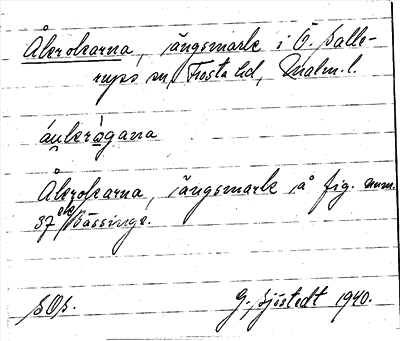 Åkrokarna, ängsmark i Ö. Salle-
rups sn, Frosta hd, Malm. l.
áukrògarra
Åkrokarna, ängsmark å fig. num.
37 Bässinge.
G. Sjöstedt 1940.